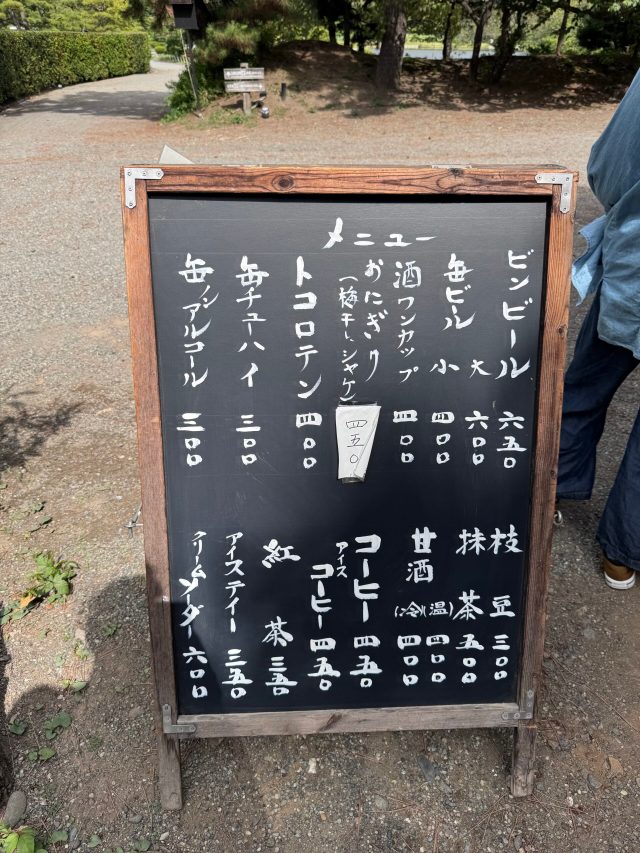 メニュー
ビンビール 六五〇
缶ビール 大 六〇〇
小 四〇〇
酒ワンカップ 四〇〇
おにぎり
(梅干し、シャケ) 四五〇
トコロテン 四〇〇
缶チューハイ 三〇〇
缶ノンアルコール 三〇〇
枝豆 三〇〇
抹茶 五〇〇
甘酒 (温) 四〇〇
(冷) 四〇〇
コーヒー 四五〇
アイスコーヒー 四五〇
紅茶 三五〇
アイスティー 三五〇
クリームソーダー 六〇〇